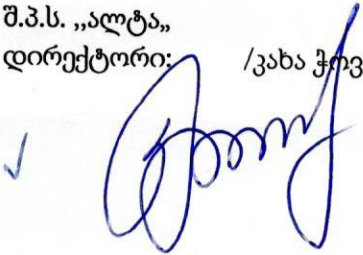 შ.პ.ს. ,,ალტა,,
დირექტორი: /კახა